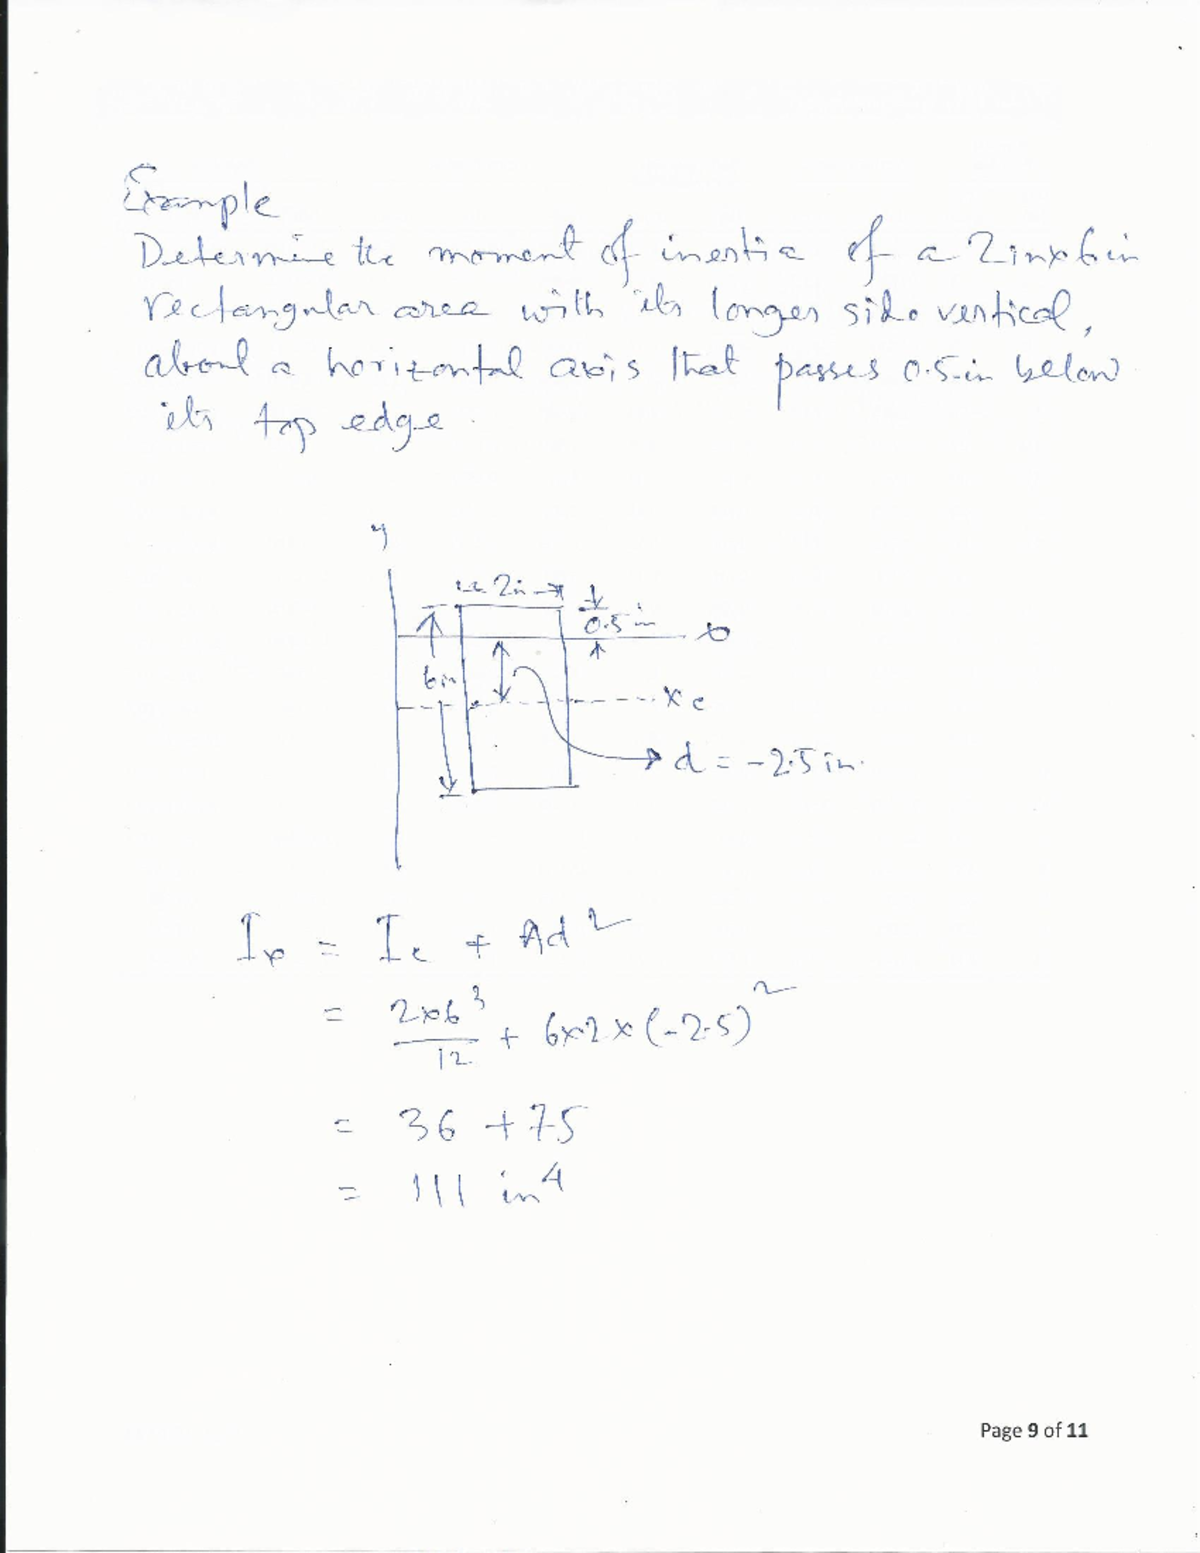 Example
Determine the moment of inertia of a 2inx6in
rectangular area with its longer side vertical,
about a horizontal axis that passes 0.5in below
its top edge.
y
2in
0.5in
x
6in
xc
d = -2.5in.
Ix = Ic + Ad²
= 2x6³/12 + 6x2x(-2.5)²
= 36 + 75
= 111 in⁴
Page 9 of 11